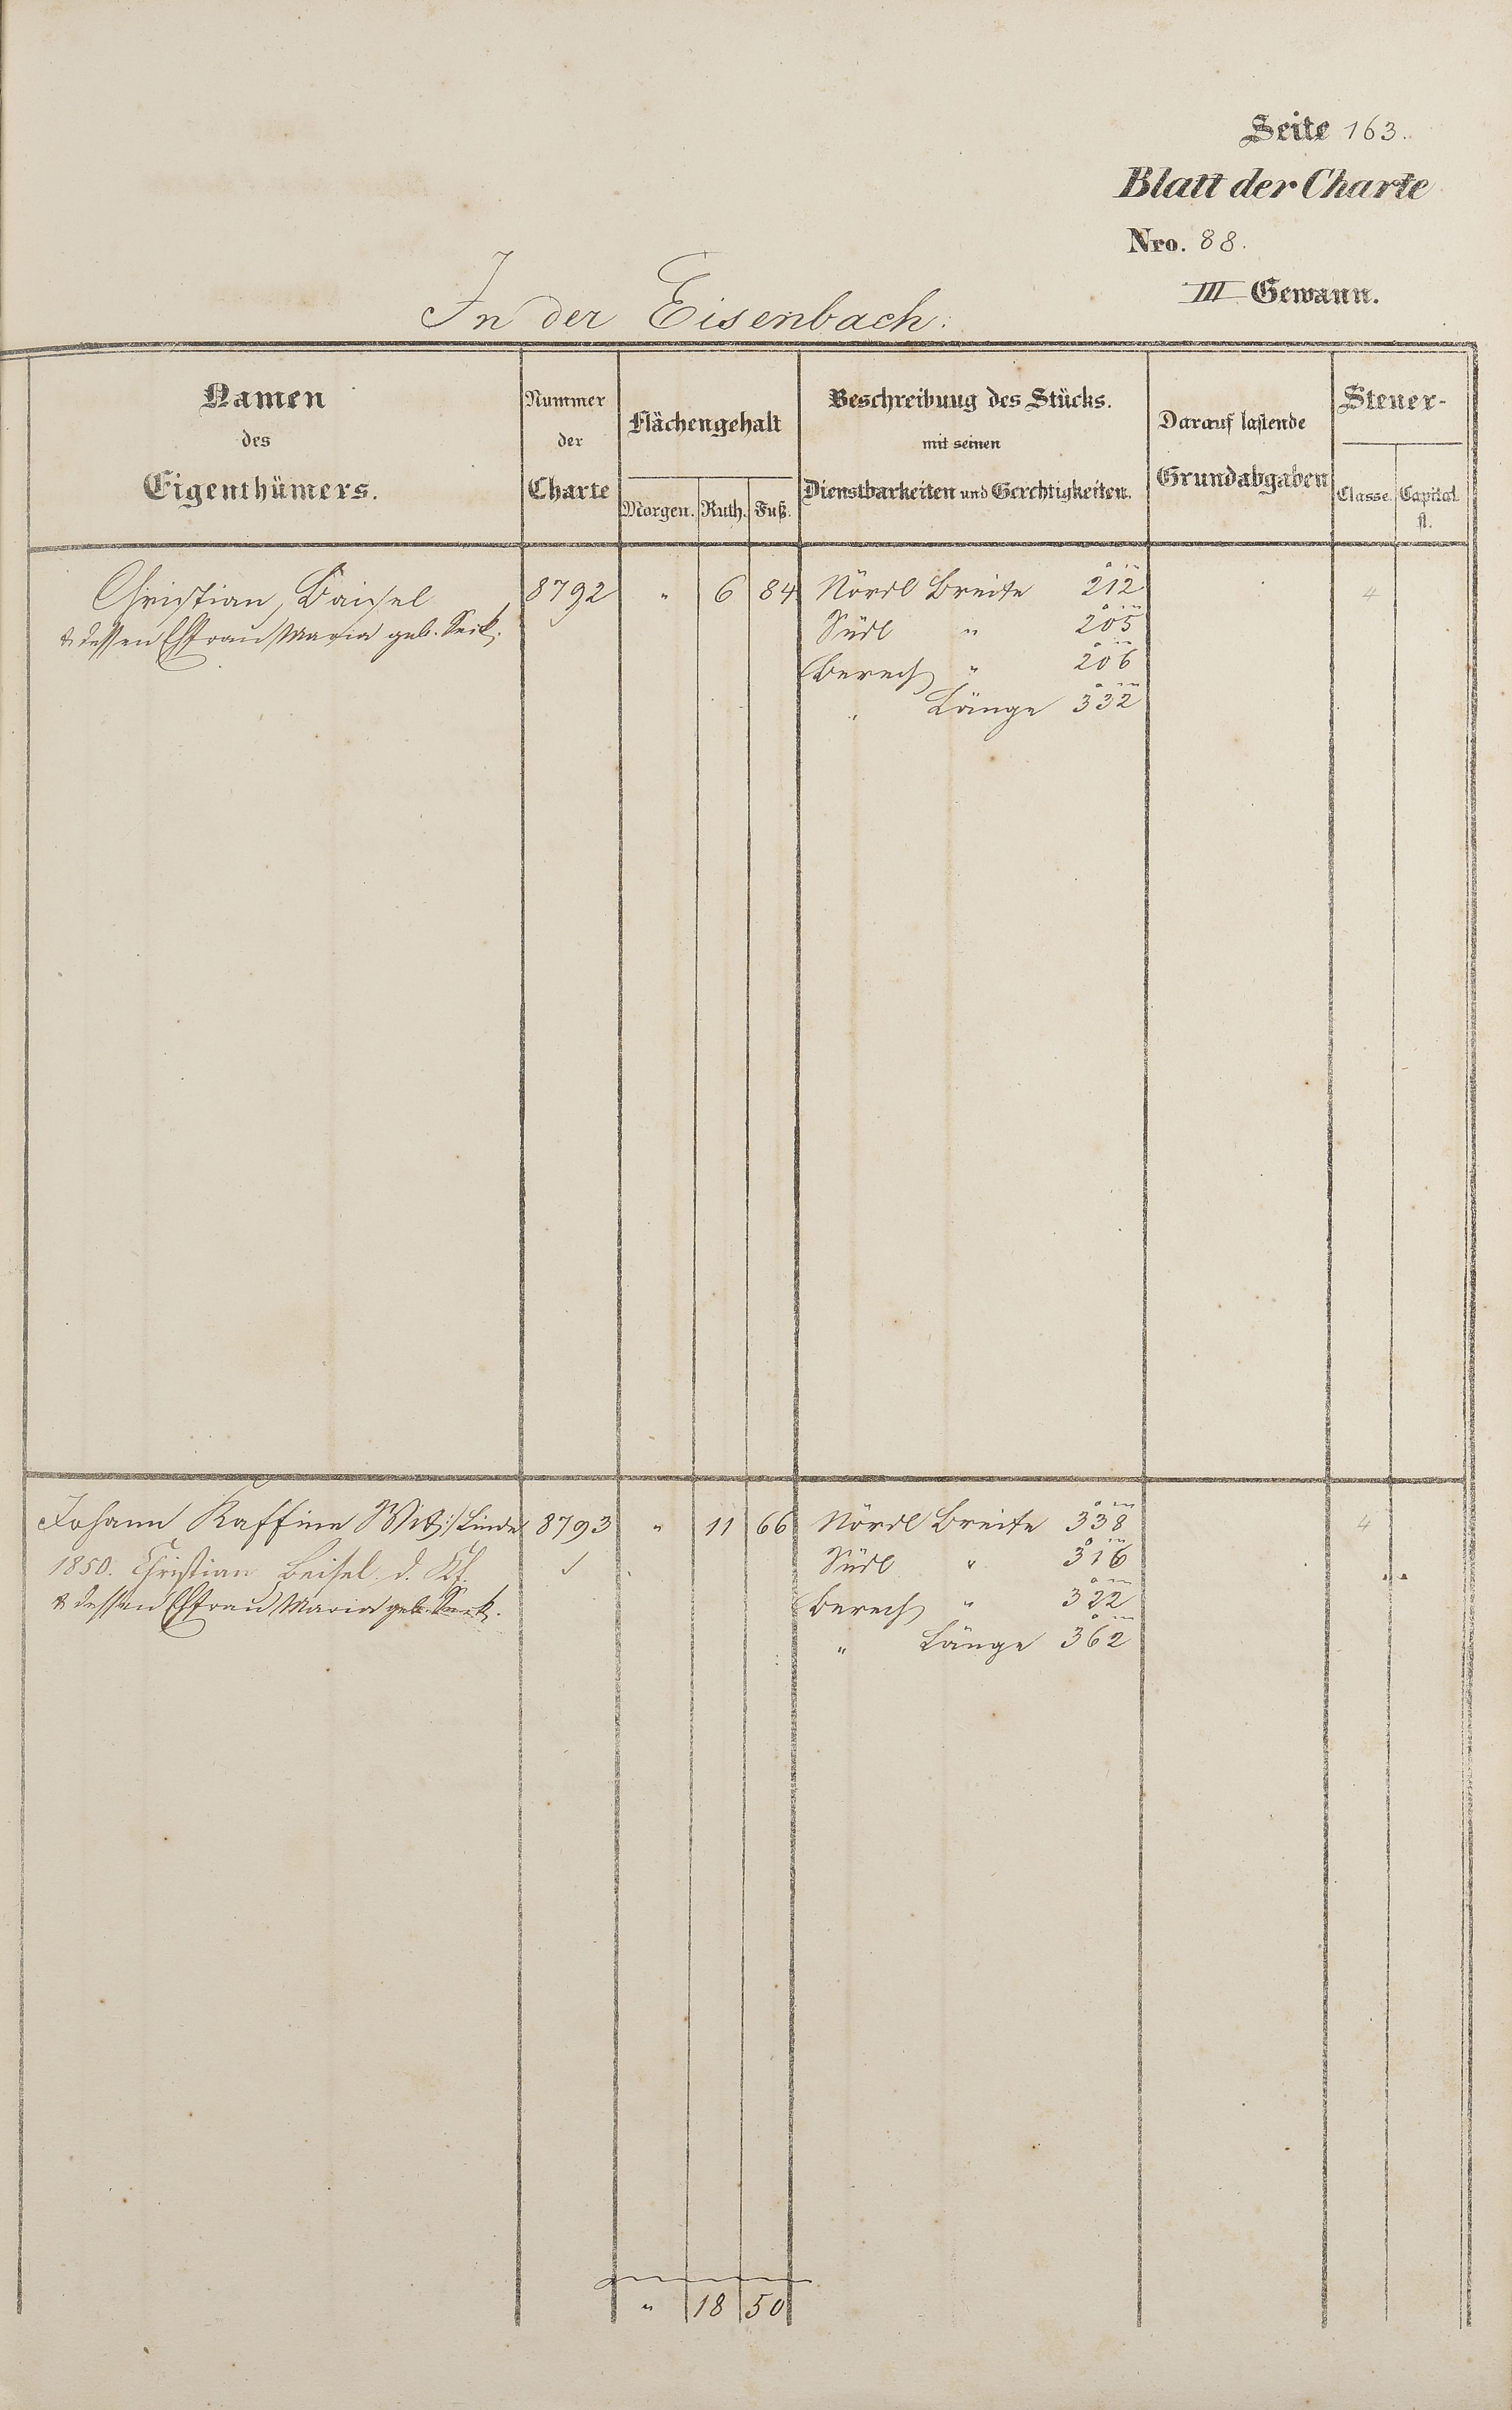 Seite 163.
Blatt der Charte
Nro. 88.
III Gewann.
In der Eisenbach.
Namen des Eigenthümers.
Nummer der Charte
Flächengehalt
Morgen. Ruth. Fuß.
Beschreibung des Stücks.
mit seinen
Dienstbarkeiten und Gerechtigkeiten.
Darauf lastende
Grundabgaben
Steuer-
Classe. Capital
fl.
Christian Baisel 8792 " 6 84 Nördl Breite 212 4
& dessen Ehfrau Maria geb. Seik. Südl " 205
Berech " 206
" Länge 332
Johann Kaffine Wit: Linde 8793 " 11 66 Nördl Breite 338 4
1850. Christian Beisel d. Kf. Südl " 316
& dessen Ehfrau Maria geb. Seik. Berech " 322
" Länge 362
" 18 50